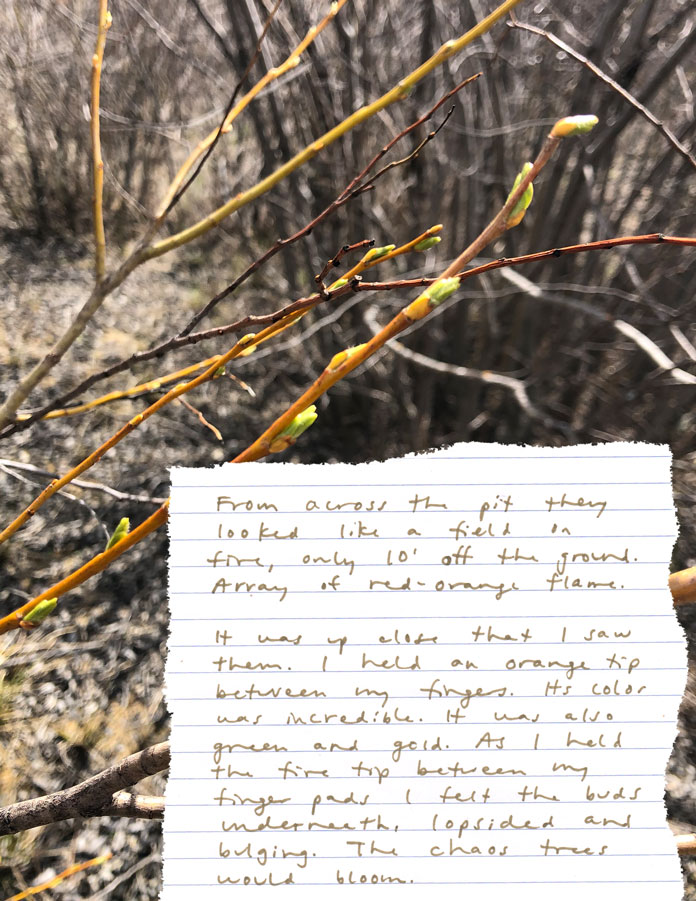 From across the pit they
looked like a field on
fire, only 10' off the ground.
Array of red-orange flame.
It was up close that I saw
them. I held an orange tip
between my fingers. Its color
was incredible. It was also
green and gold. As I held
the fire tip between my
finger pads I felt the buds
underneath, lopsided and
bulging. The chaos trees
would bloom.